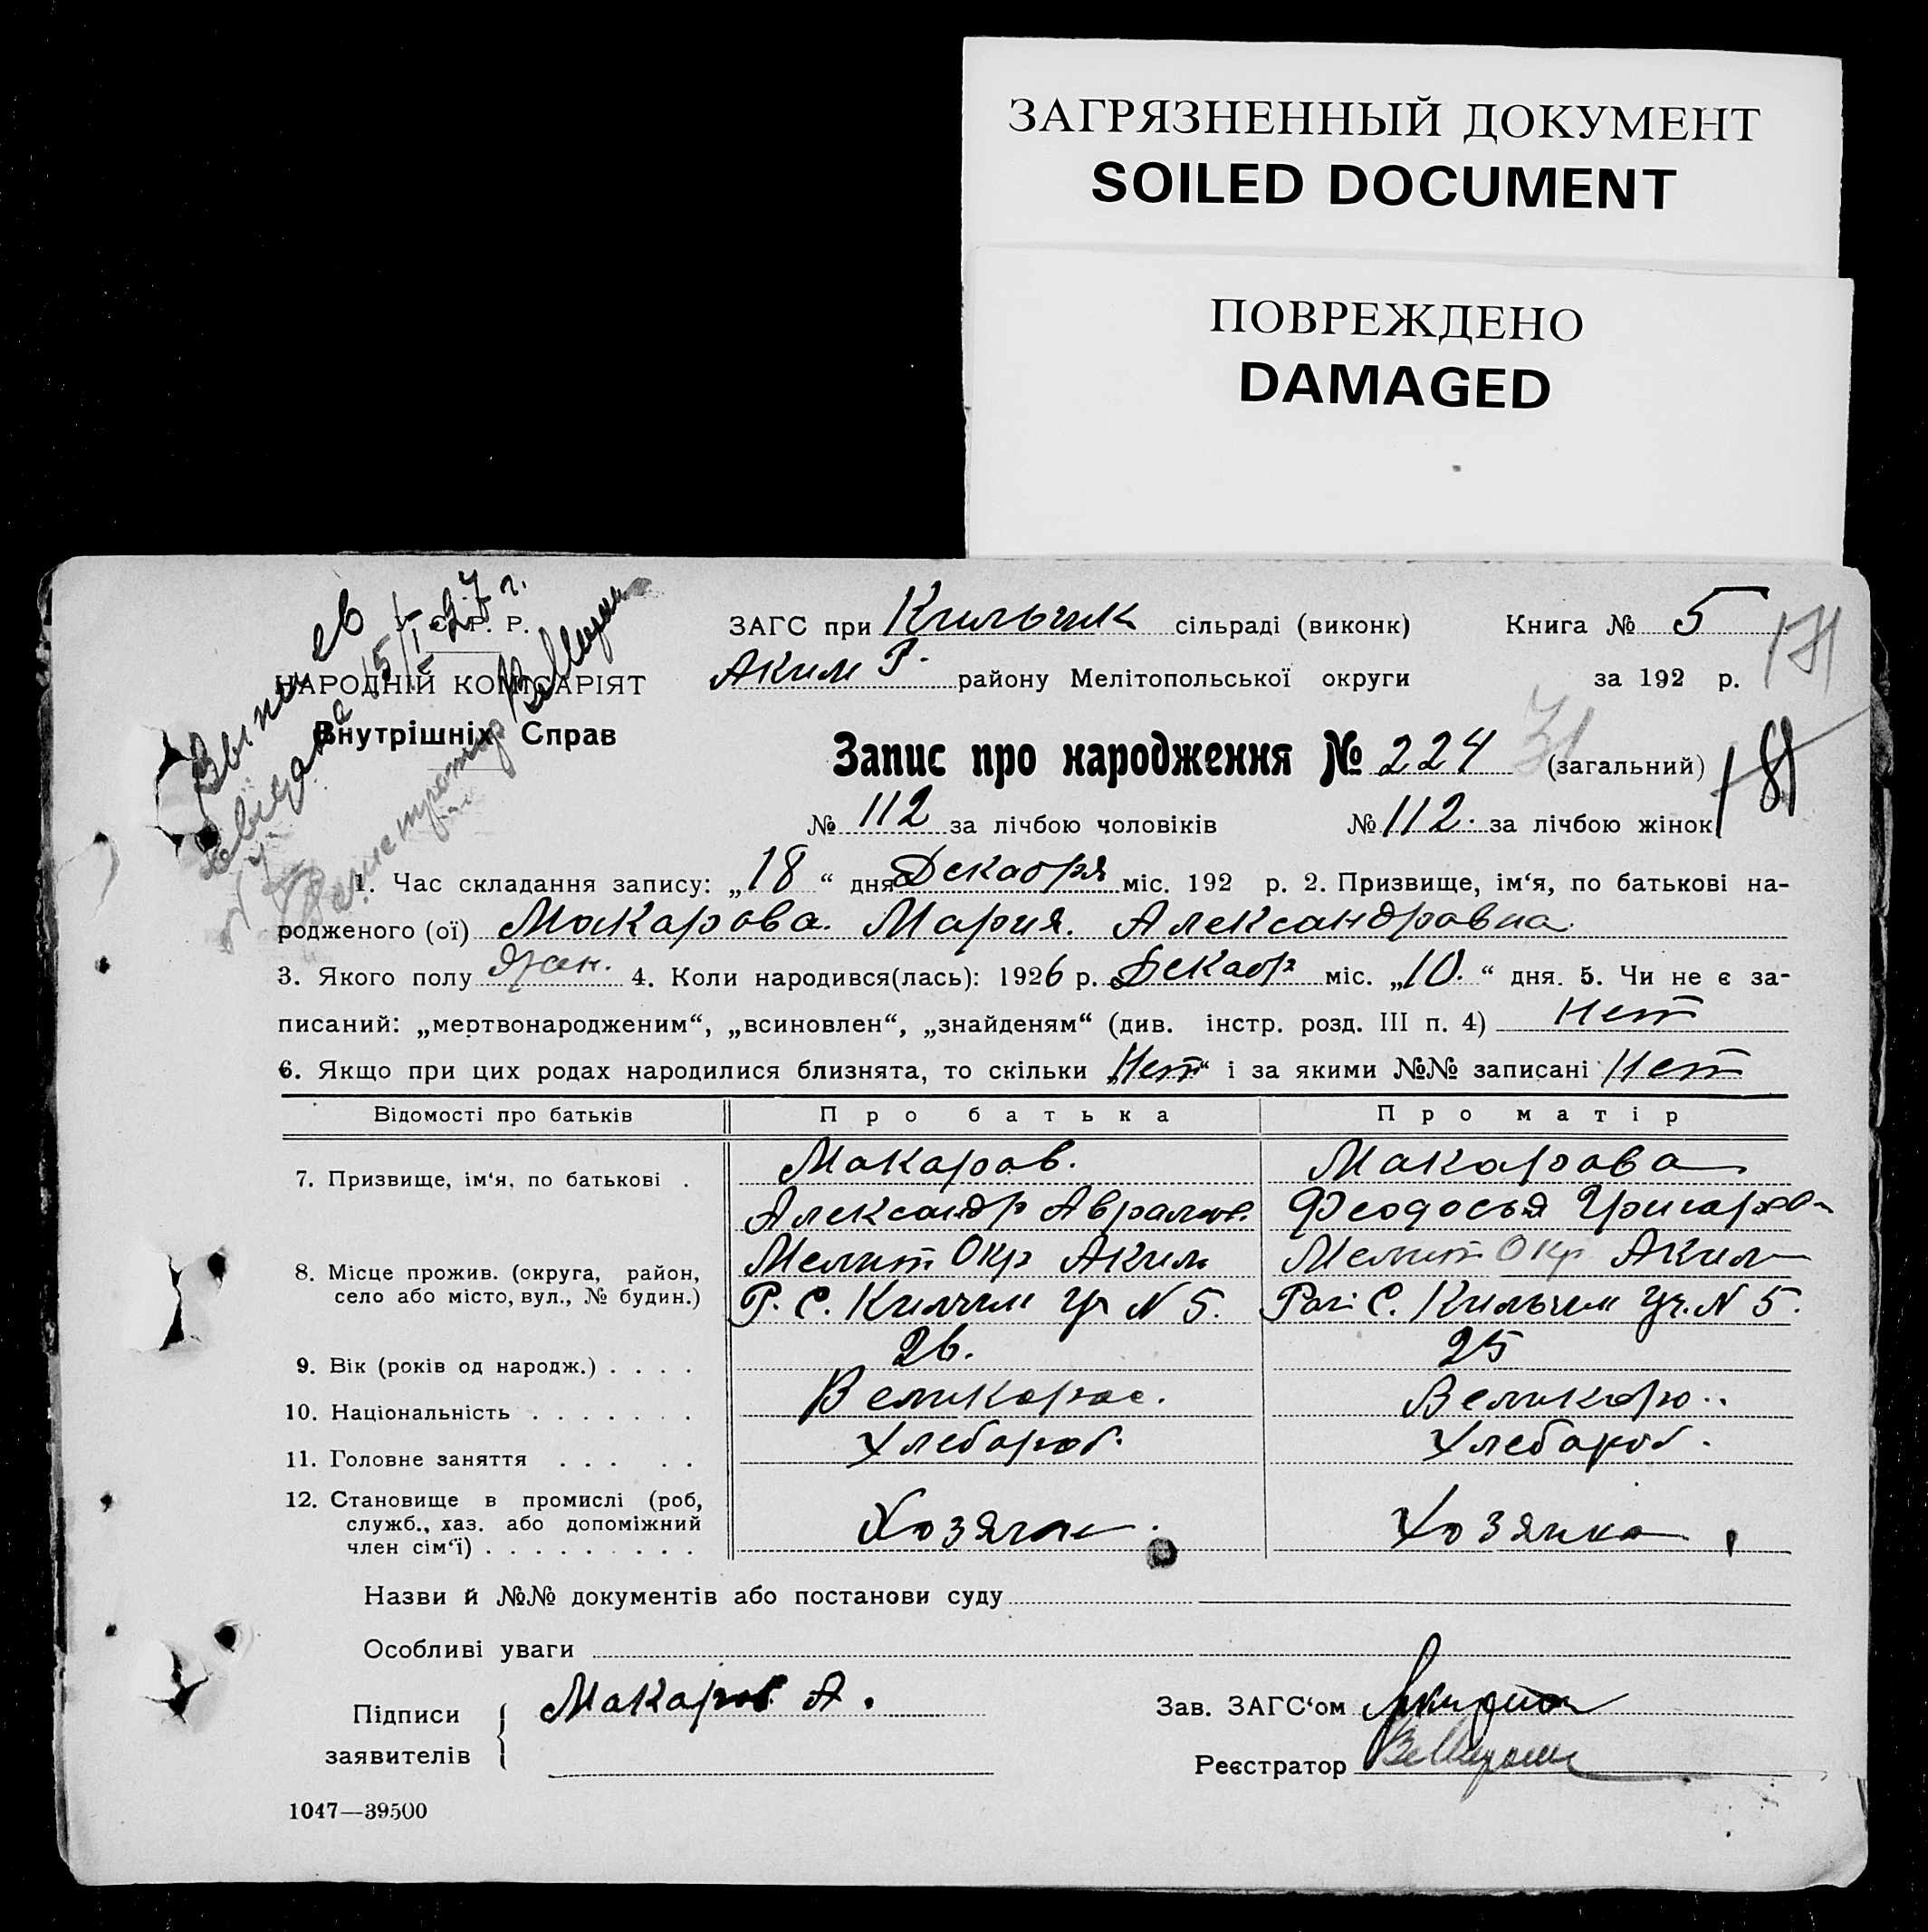 ЗАГРЯЗНЕННЫЙ ДОКУМЕНТ
SOILED DOCUMENT
ПОВРЕЖДЕНО
DAMAGED
У. С. Р. Р.
НАРОДНІЙ КОМІСАРІЯТ
Внутрішніх Справ
15/I-27 г.
ЗАГС при Кильчик сільраді (виконк) Книга № 5
Аким Р. району Мелітопольської округи за 192 р.
Запис про народження № 224 (загальний)
№ 112 за лічбою чоловіків № 112. за лічбою жінок
1. Час складання запису: „18“ дня Декабря міс. 192 р. 2. Призвище, ім‘я, по батькові на-
родженого (ої) Макарова. Мария. Александровна.
3. Якого полу жен. 4. Коли народився(лась): 1926 р. Декабр міс. „10.“ дня. 5. Чи не є за-
писаний: „мертвонародженим“, „всиновлен“, „знайденям“ (див. інстр. розд. III п. 4) Нет
6. Якщо при цих родах народилися близнята, то скільки „Нет“ і за якими №№ записані Нет
Відомості про батьків Про батька Про матір
7. Призвище, ім‘я, по батькові . Макаров. Макарова
Александр Аврамов. Феодосья Григоров
8. Місце прожив. (округа, район, Мелит Окр Аким Мелит Окр Аким
село або місто, вул., № будин.) Р. С. Килчик Уч N 5. С. Кильчик Уч. N 5.
9. Вік (років од народж.) . . . . 26. 25
10. Національність . . . . . . . Великорос. Великоро..
11. Головне заняття . . . . . Хлебороб. Хлебороб.
12. Становище в промислі (роб,
служб., хаз. або допоміжний Хозяин. Хозяика
член сім‘ї) . . . . . . . . .
Назви й №№ документів або постанови суду
Особливі уваги
Підписи Макаров А. Зав. ЗАГС‘ом
заявителів Реєстратор
1047—39500